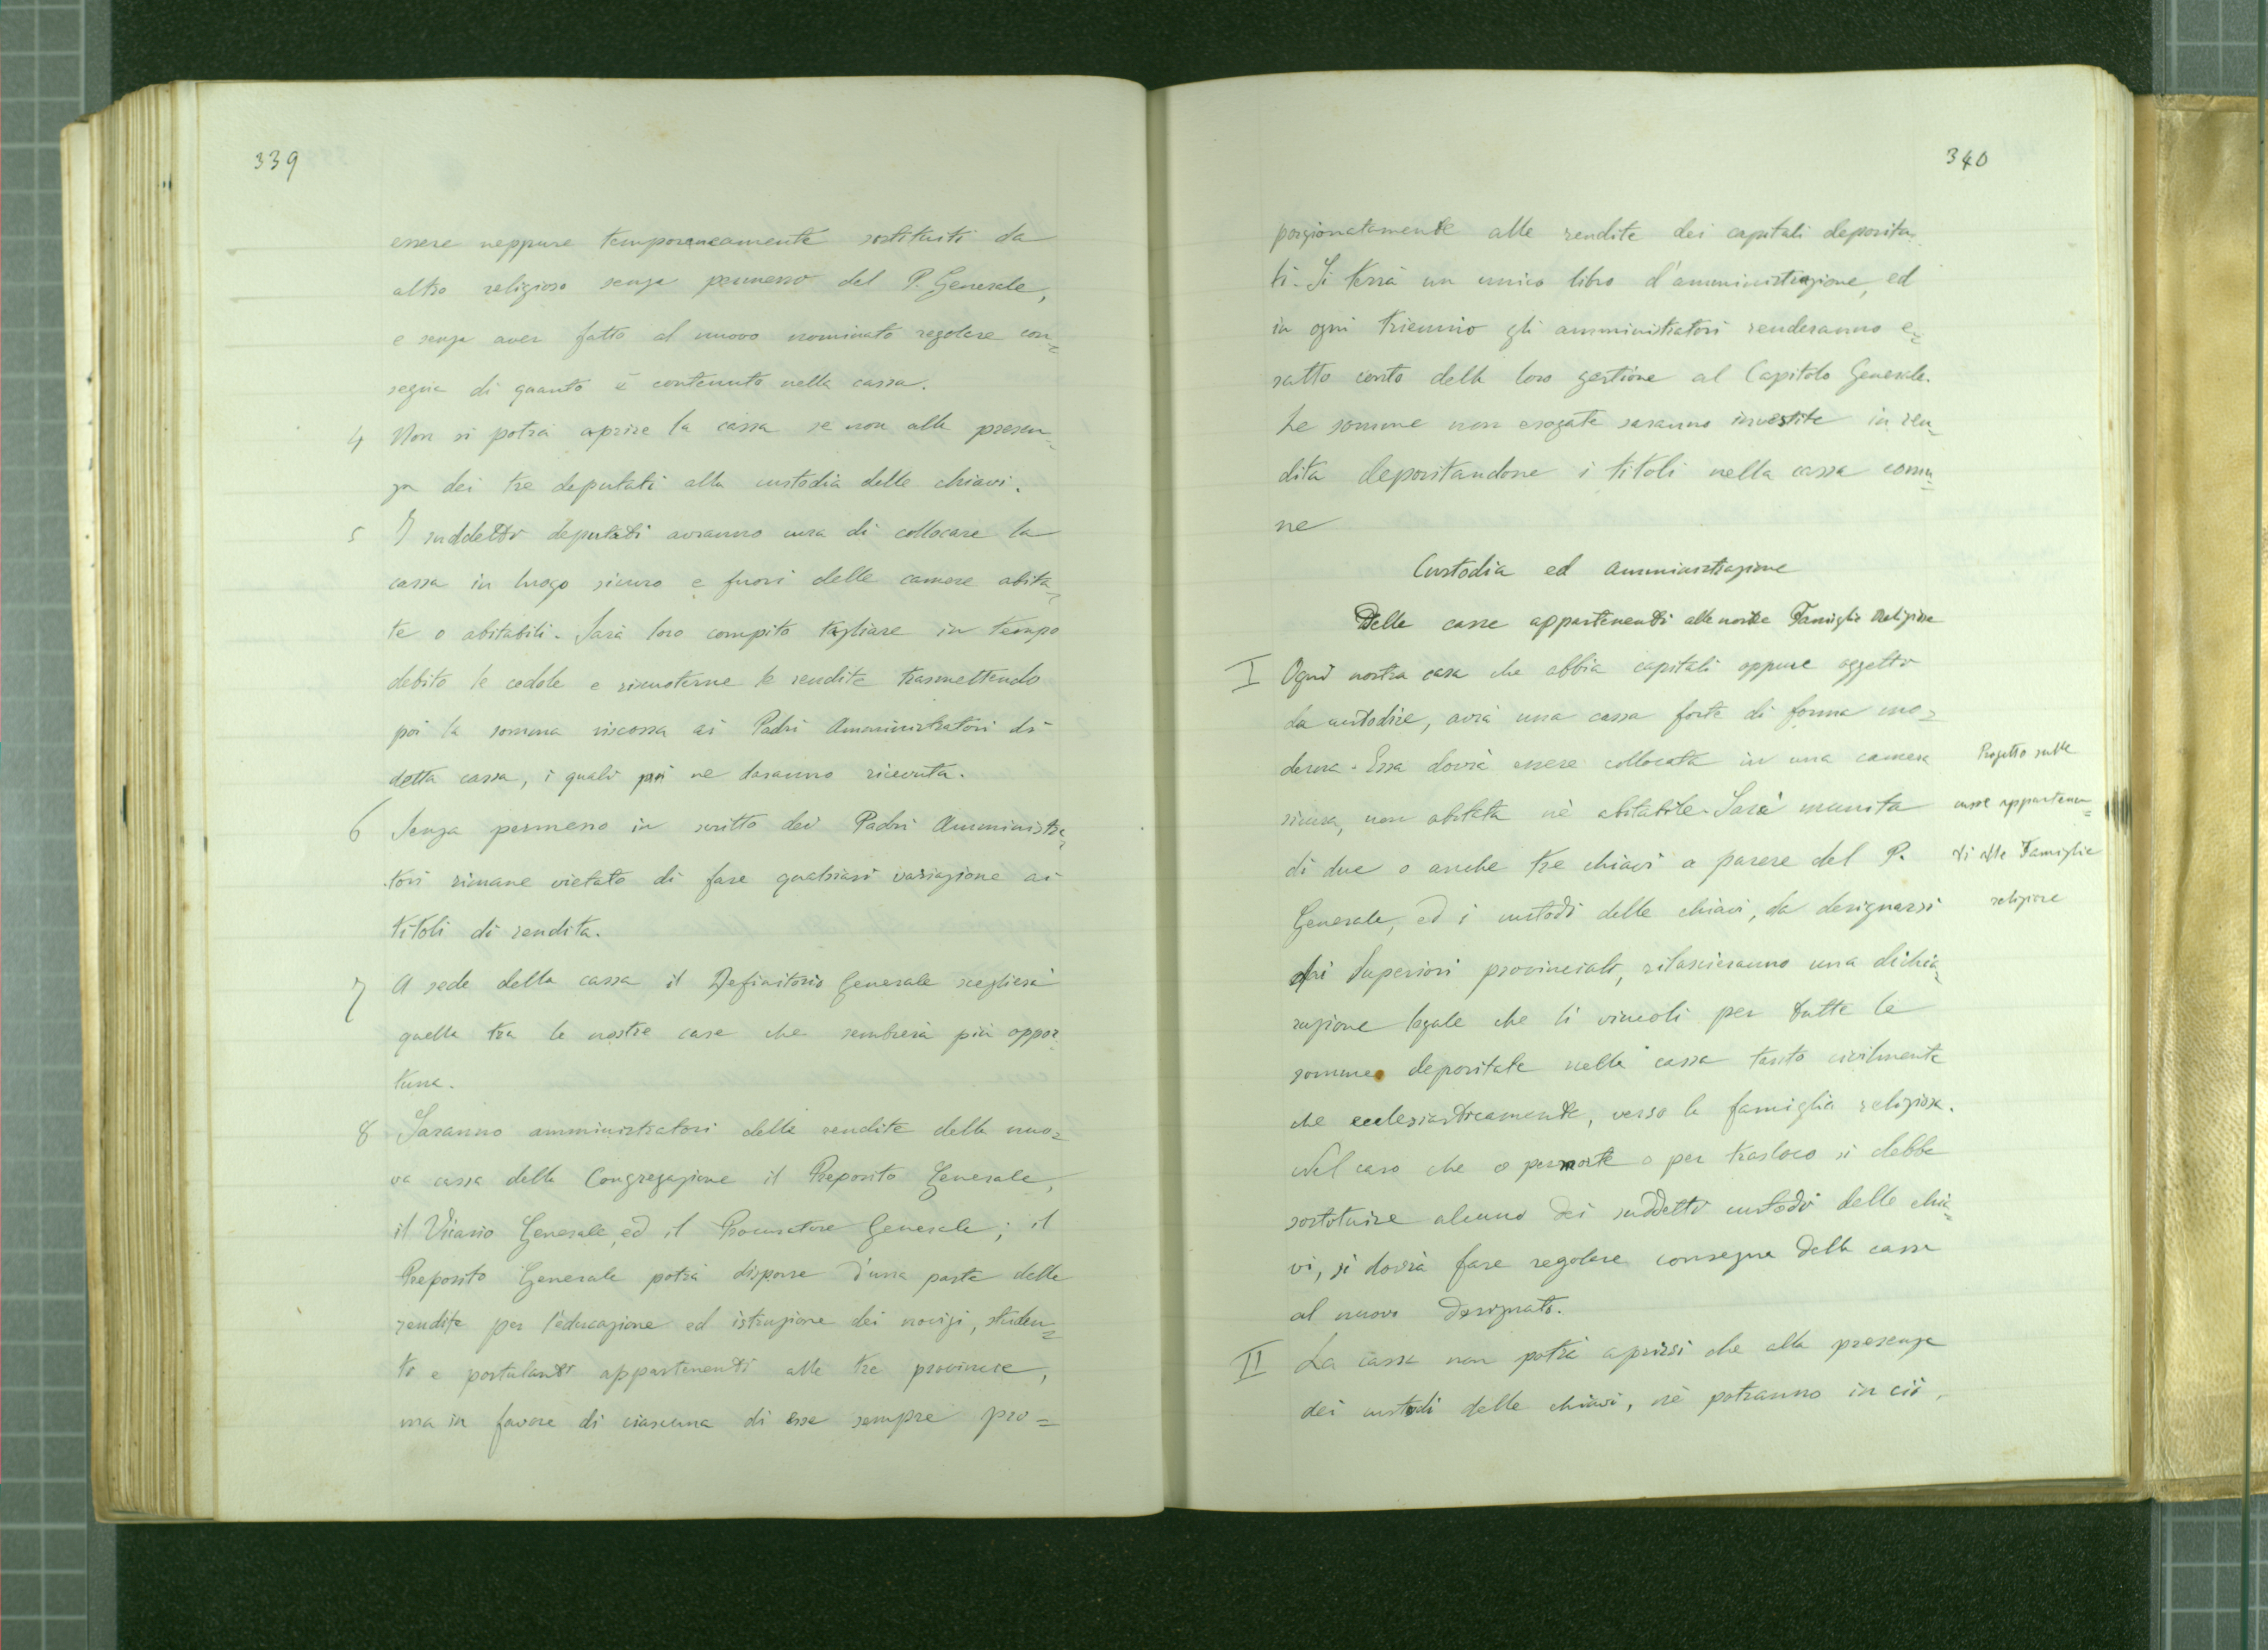 339
essere neppure temporaneamente sostituiti da
altro religioso senza permesso del P. Generale,
e senza aver fatto al nuovo nominato regolare con=
segna di quanto è contenuto nella cassa.
4 Non si potrà aprire la cassa se non alla presen=
za dei tre deputati alla custodia delle chiavi.
5 I suddetti deputati avranno cura di collocare la
cassa in luogo sicuro e fuori delle camere abita=
te o abitabili. Sarà loro compito tagliare in tempo
debito le cedole e riscuoterne le rendite trasmettendo
poi la somma riscossa ai Padri Amministratori di
detta cassa, i quali poi ne daranno ricevuta.
6 Senza permesso in scritto dei Padri Amministra=
tori rimane vietato di fare qualsiasi variazione ai
titoli di rendita.
7 A sede della cassa il Definitorio Generale sceglierà
quella tra le nostre case che sembrerà più oppor=
tuna.
8 Saranno amministratori delle rendite della nuo=
va cassa della Congregazione il Preposito Generale,
il Vicario Generale, ed il Procuratore Generale; il
Preposito Generale potrà disporre d'una parte delle
rendite per l'educazione ed istruzione dei novizi, studen=
ti e postulanti appartenenti alle tre provincie,
ma in favore di ciascuna di esse sempre pro=
340
porzionatamente alle rendite dei capitali deposita=
ti. Si terrà un unico libro d'amministrazione, ed
in ogni triennio gli amministratori renderanno e=
satto conto della loro gestione al Capitolo Generale.
Le somme non erogate saranno investite in ren=
dita depositandone i titoli nella cassa comu=
ne
Custodia ed Amministrazione
Delle casse appartenenti alle nostre Famiglie Religiose
I Ogni nostra casa che abbia capitali oppure oggetti
da custodire, avrà una cassa forte di forma mo=
derna. Essa dovrà essere collocata in una camera
sicura, non abitata nè abitabile. Sarà munita
di due o anche tre chiavi a parere del P.
Generale, ed i custodi delle chiavi, da designarsi
dai Superiori provinciali, rilascieranno una dichia=
razione legale che li vincoli per tutte le
somme depositate nella cassa tanto civilmente
che ecclesiasticamente, verso la famiglia religiosa.
Nel caso che o per morte o per trasloco si debba
sostituire alcuno dei suddetti custodi delle chia=
vi, si dovrà fare regolare consegna della cassa
al nuovo designato.
II La cassa non potrà aprirsi che alla presenza
dei custodi delle chiavi, nè potranno in ciò,
Progetto sulle
casse appartenen=
ti alle Famiglie
religiose